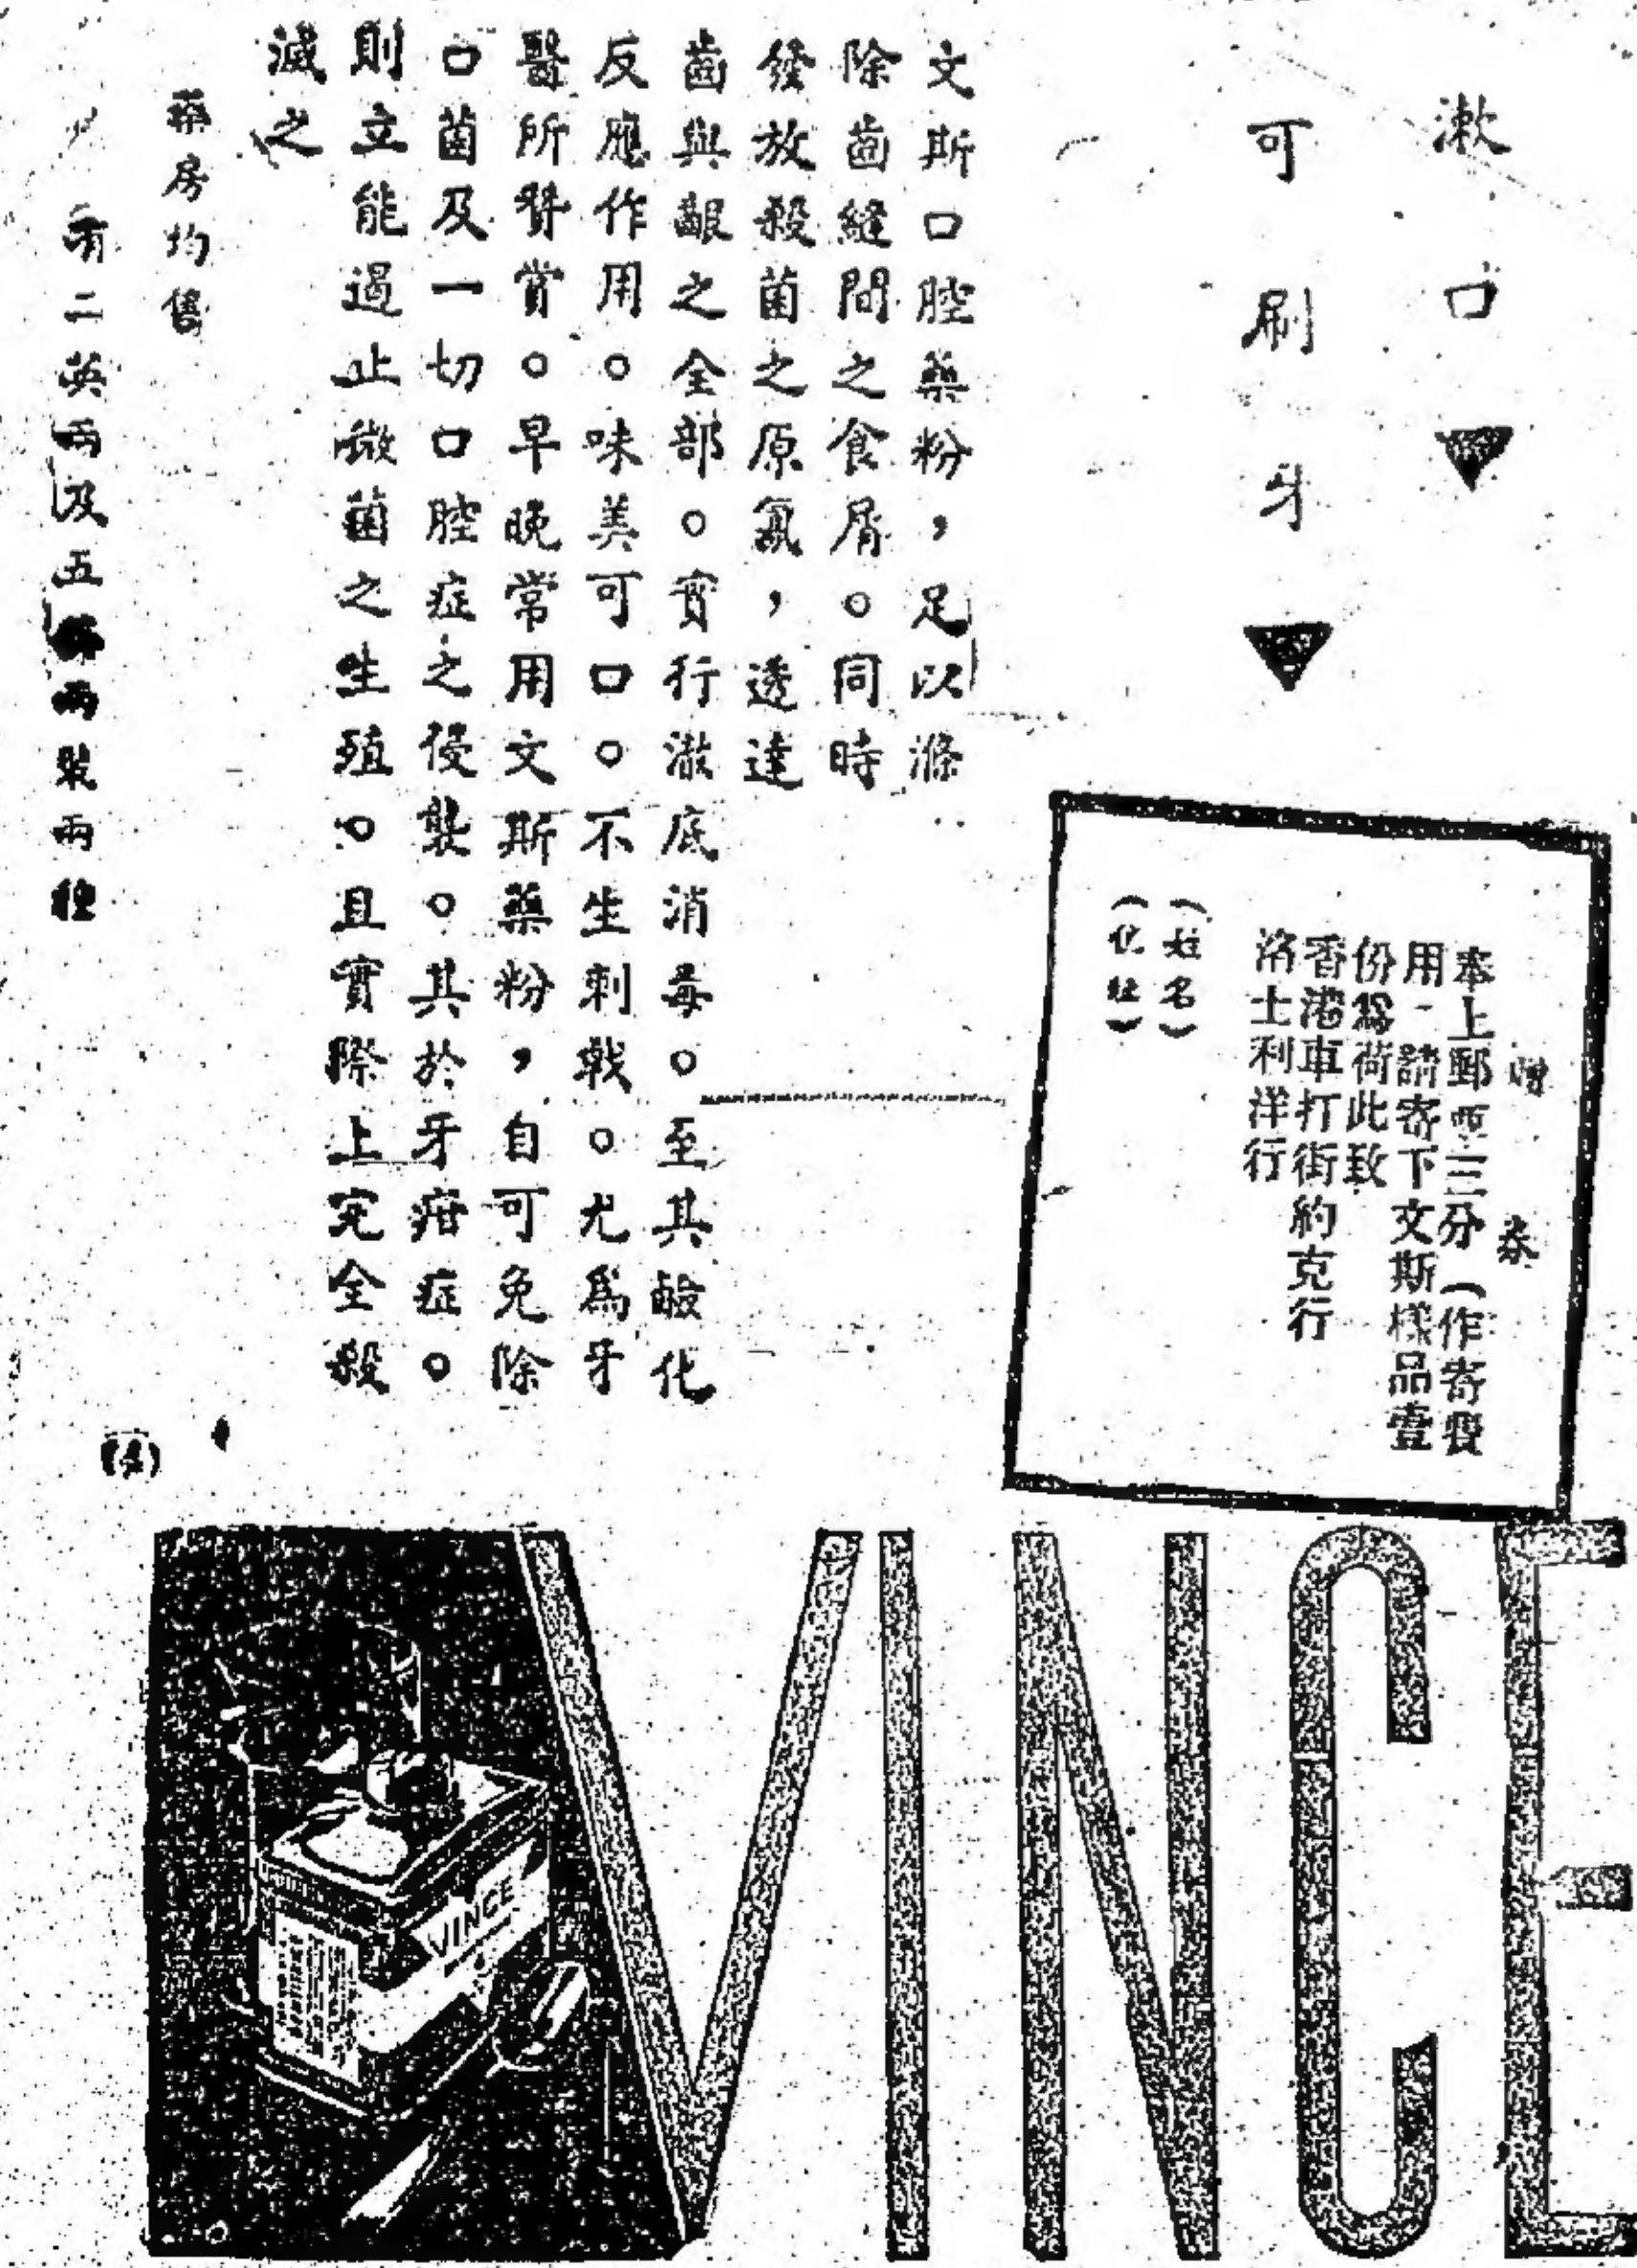 漱口
可刷牙
文斯口腔藥粉，足以滌
除齒縫間之食屑。同時
發放殺菌之原氣，透達
齒與齦之全部。實行澈底消毒。至其鹼化
反應作用。味美可口。不生刺戟。尤爲牙
醫所贊賞。早晚常用文斯藥粉，自可免除
口菌及一切口腔症之侵襲。其於牙疳症。
則立能遏止微菌之生殖。且實際上完全殺
滅之
藥房均售
有二英兩及五英兩裝兩種
贈券
奉上郵票三分（作寄費
用、請寄下文斯樣品壹
份爲荷此致
香港車打街約克行
洛士利洋行
（姓名）
（住址）
VINCE
VINCE